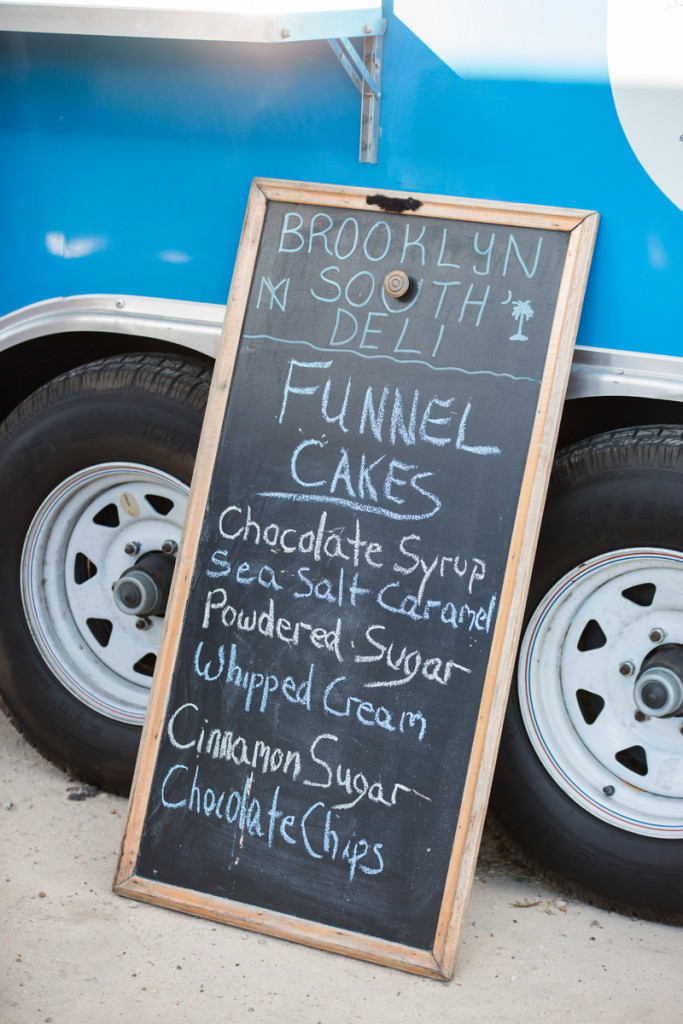 BROOKLYN
N SOUTH'
DELI
FUNNEL
CAKES
Chocolate Syrup
Sea Salt Caramel
Powdered Sugar
Whipped Cream
Cinnamon Sugar
Chocolate Chips